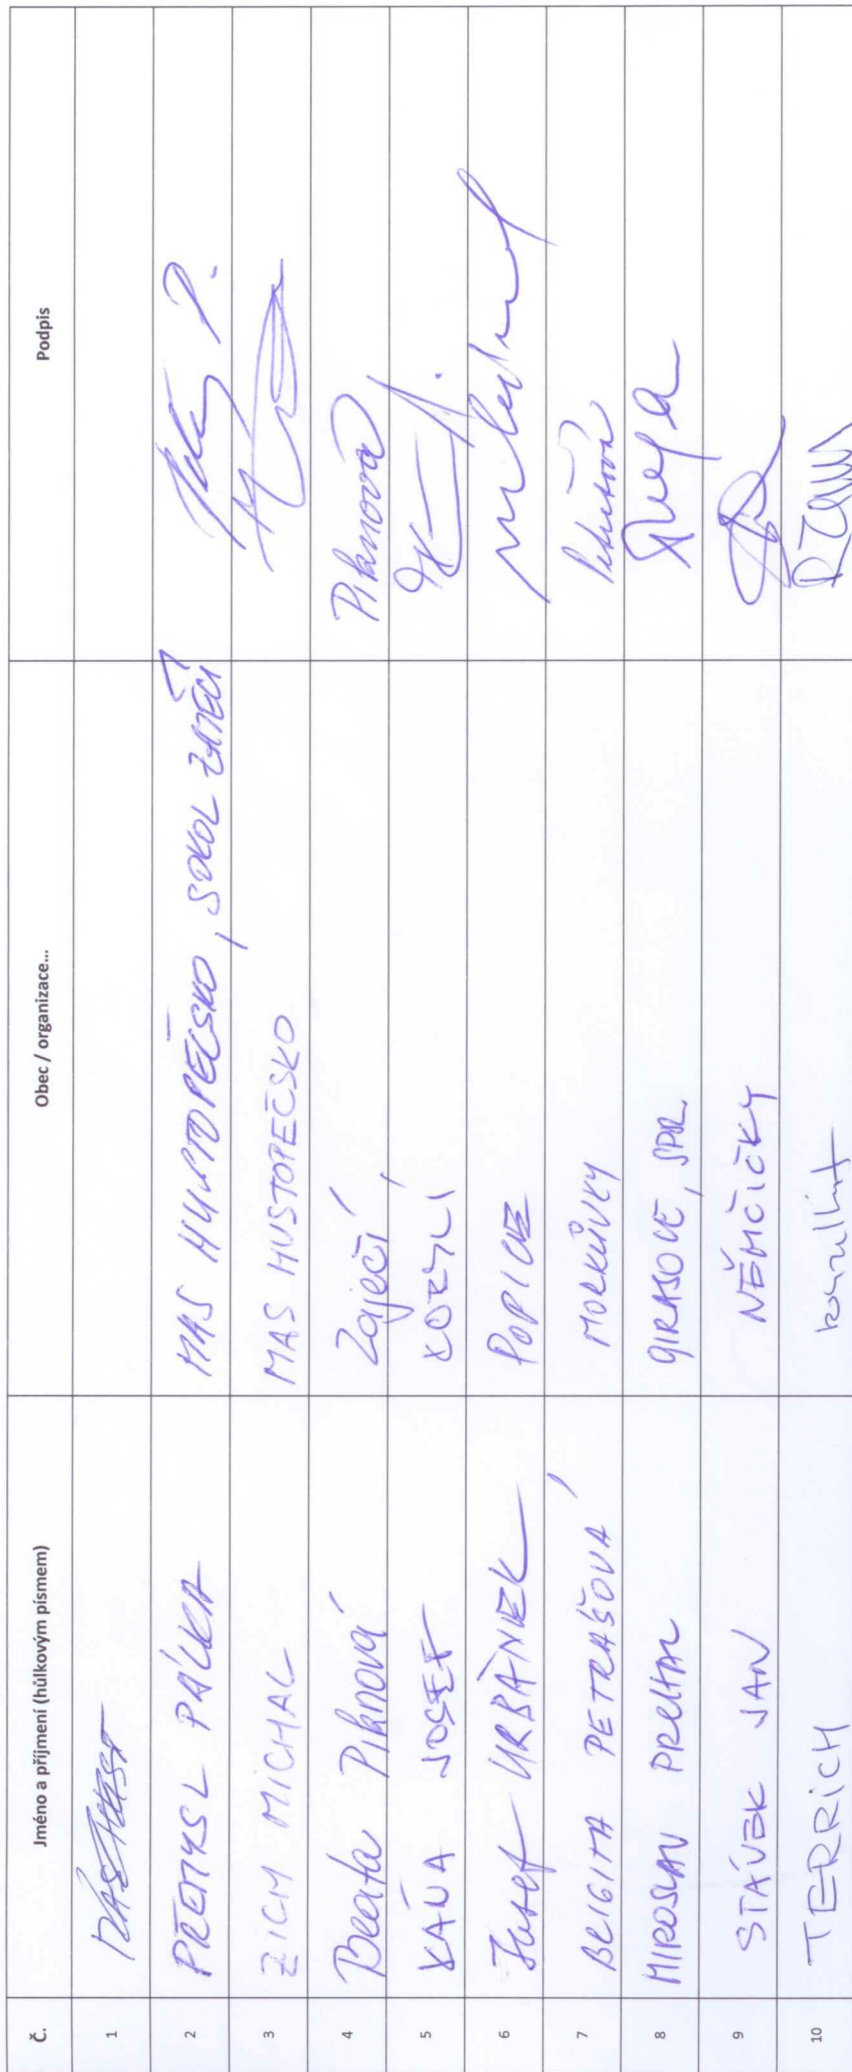 Č. Jméno a příjmení (hůlkovým písmem) Obec / organizace... Podpis
1
2 PŘEMYSL PÁLKA MAS HUSTOPEČSKO, SOKOL ZAJEČÍ
3 ZICH MICHAL MAS HUSTOPEČSKO
4 Beata Piknová Zaječí Piknová
5 KÁŇA JOSEF KOBYLÍ
6 Josef URBÁNEK POPICE
7 BRIGITA PETRAŠOVÁ MORKŮVKY Petrašová
8 MIROSLAV GIRASOLE, SPOL.
9 STÁVEK JAN NĚMČIČKY
10 TERRICH konzultant